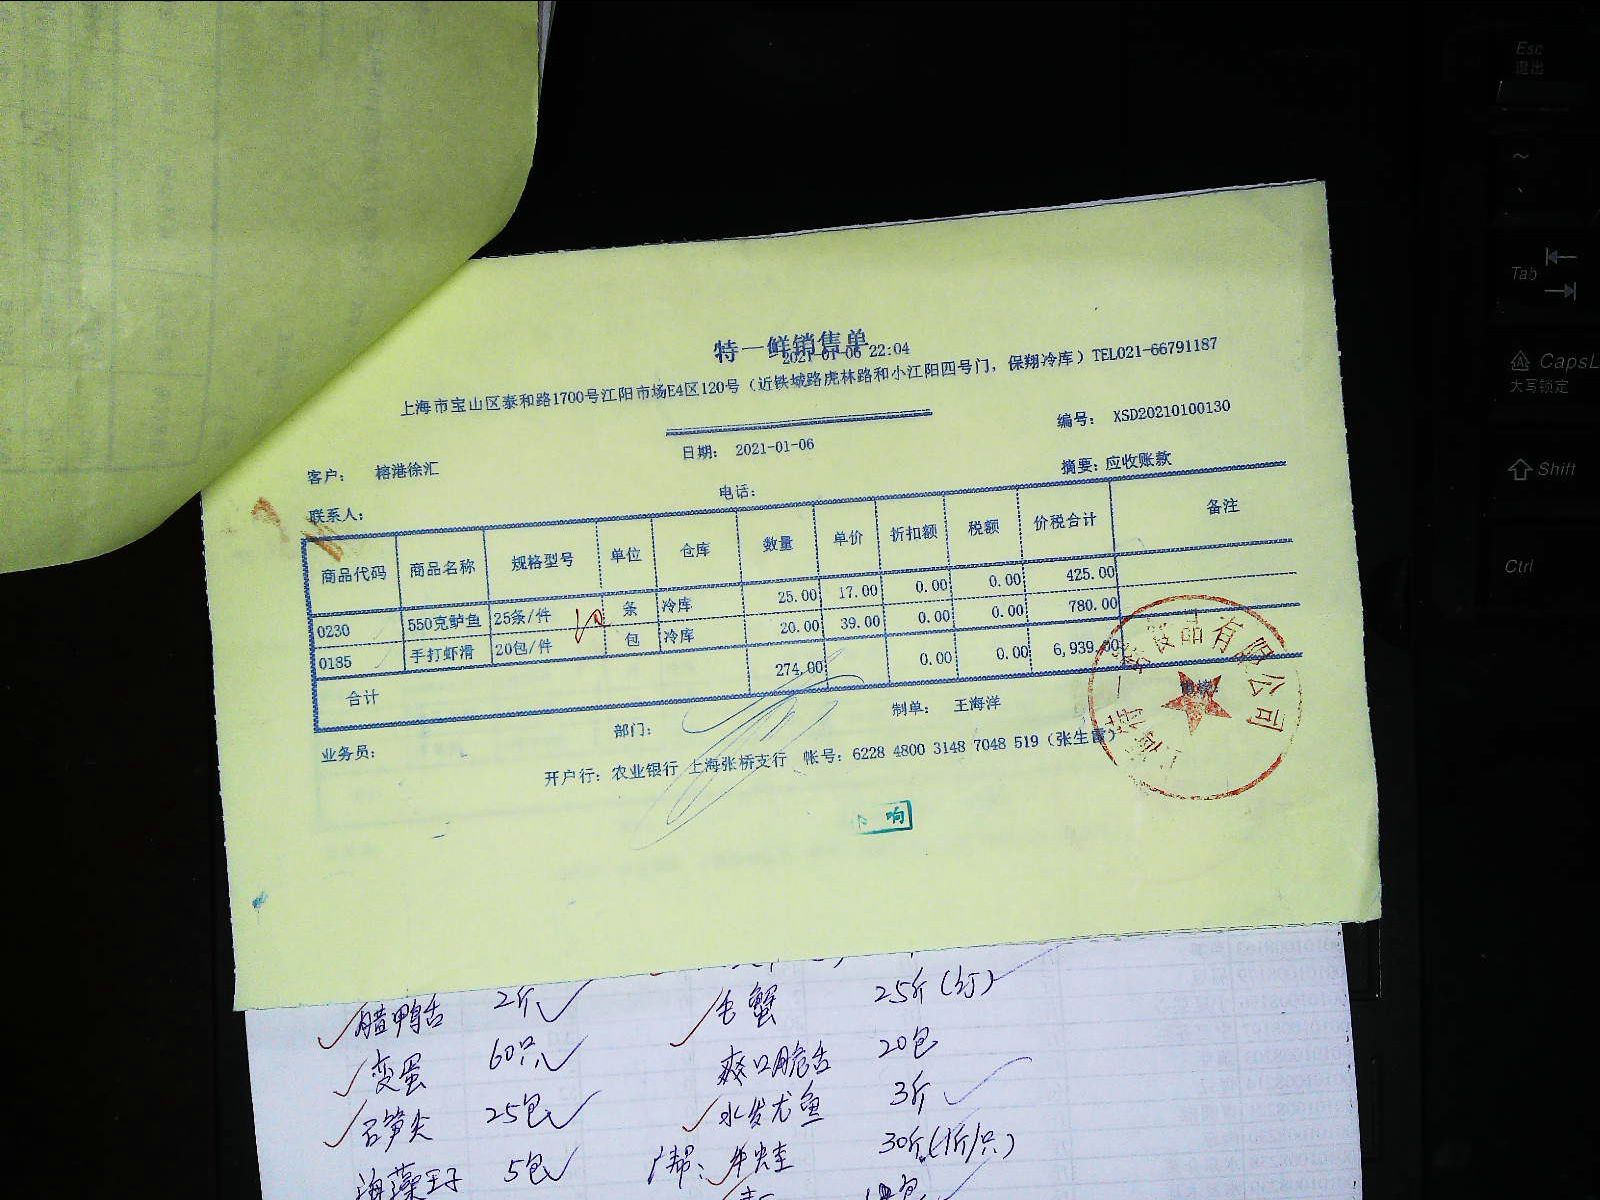 特一鲜销售单
2021-01-06 22:04
上海市宝山区泰和路1700号江阳市场E4区120号（近铁城路虎林路和小江阳四号门，保翔冷库）TEL021-66791187
编号： XSD20210100130
日期： 2021-01-06
客户： 榕港徐汇
摘要：应收账款
电话：
联系人：
商品代码 商品名称 规格型号 单位 仓库 数量 单价 折扣额 税额 价税合计 备注
0230 550克鲈鱼 25条/件 条 冷库 25.00 17.00 0.00 0.00 425.00
0185 手打虾滑 20包/件 包 冷库 20.00 39.00 0.00 0.00 780.00
合计 274.00 0.00 0.00 6,939.00
业务员： 部门： 制单： 王海洋
开户行：农业银行 上海张桥支行 帐号：6228 4800 3148 7048 519（张生富）
食品有限公司
响
腊鸭舌 2斤 毛蟹 25斤(订)
变蛋 60只 爽口脆舌 20包
石笋尖 25包 水发尤鱼 3斤
海藻王子 5包 广帮、牛蛙 30斤(1斤/只)
Esc
退出
~
Tab
CapsL
大写锁定
Shift
Ctrl